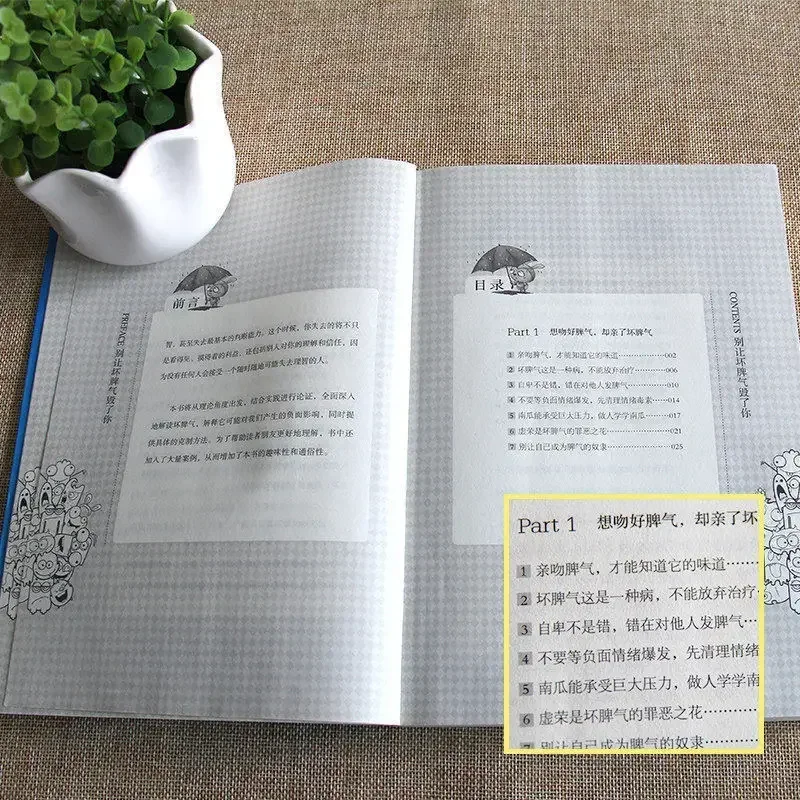 前言
智，甚至失去最基本的判断能力。这个时候，你失去的将不只
是看得见、摸得着的利益，还包括别人对你的理解和信任，因
为没有任何人会接受一个随时随地可能失去理智的人。
本书将从理论角度出发，结合实践进行论证，全面深入
地解读坏脾气，解释它可能对我们产生的负面影响，同时提
供具体的克制方法，为了帮助读者朋友更好地理解，书中还
加入了大量案例，从而增加了本书的趣味性和通俗性。
PREFACE 别让坏脾气毁了你
目录
Part 1 想吻好脾气，却亲了坏脾气
1 亲吻脾气，才能知道它的味道……………002
2 坏脾气这是一种病，不能放弃治疗…………006
3 自卑不是错，错在对他人发脾气……………010
4 不要等负面情绪爆发，先清理情绪毒素……014
5 南瓜能承受巨大压力，做人学学南瓜………017
6 虚荣是坏脾气的罪恶之花……………………021
7 别让自己成为脾气的奴隶……………………025
CONTENTS 别让坏脾气毁了你
Part 1 想吻好脾气，却亲了坏
1 亲吻脾气，才能知道它的味道……
2 坏脾气这是一种病，不能放弃治疗
3 自卑不是错，错在对他人发脾气…
4 不要等负面情绪爆发，先清理情绪
5 南瓜能承受巨大压力，做人学学南
6 虚荣是坏脾气的罪恶之花…………
7 别让自己成为脾气的奴隶…………